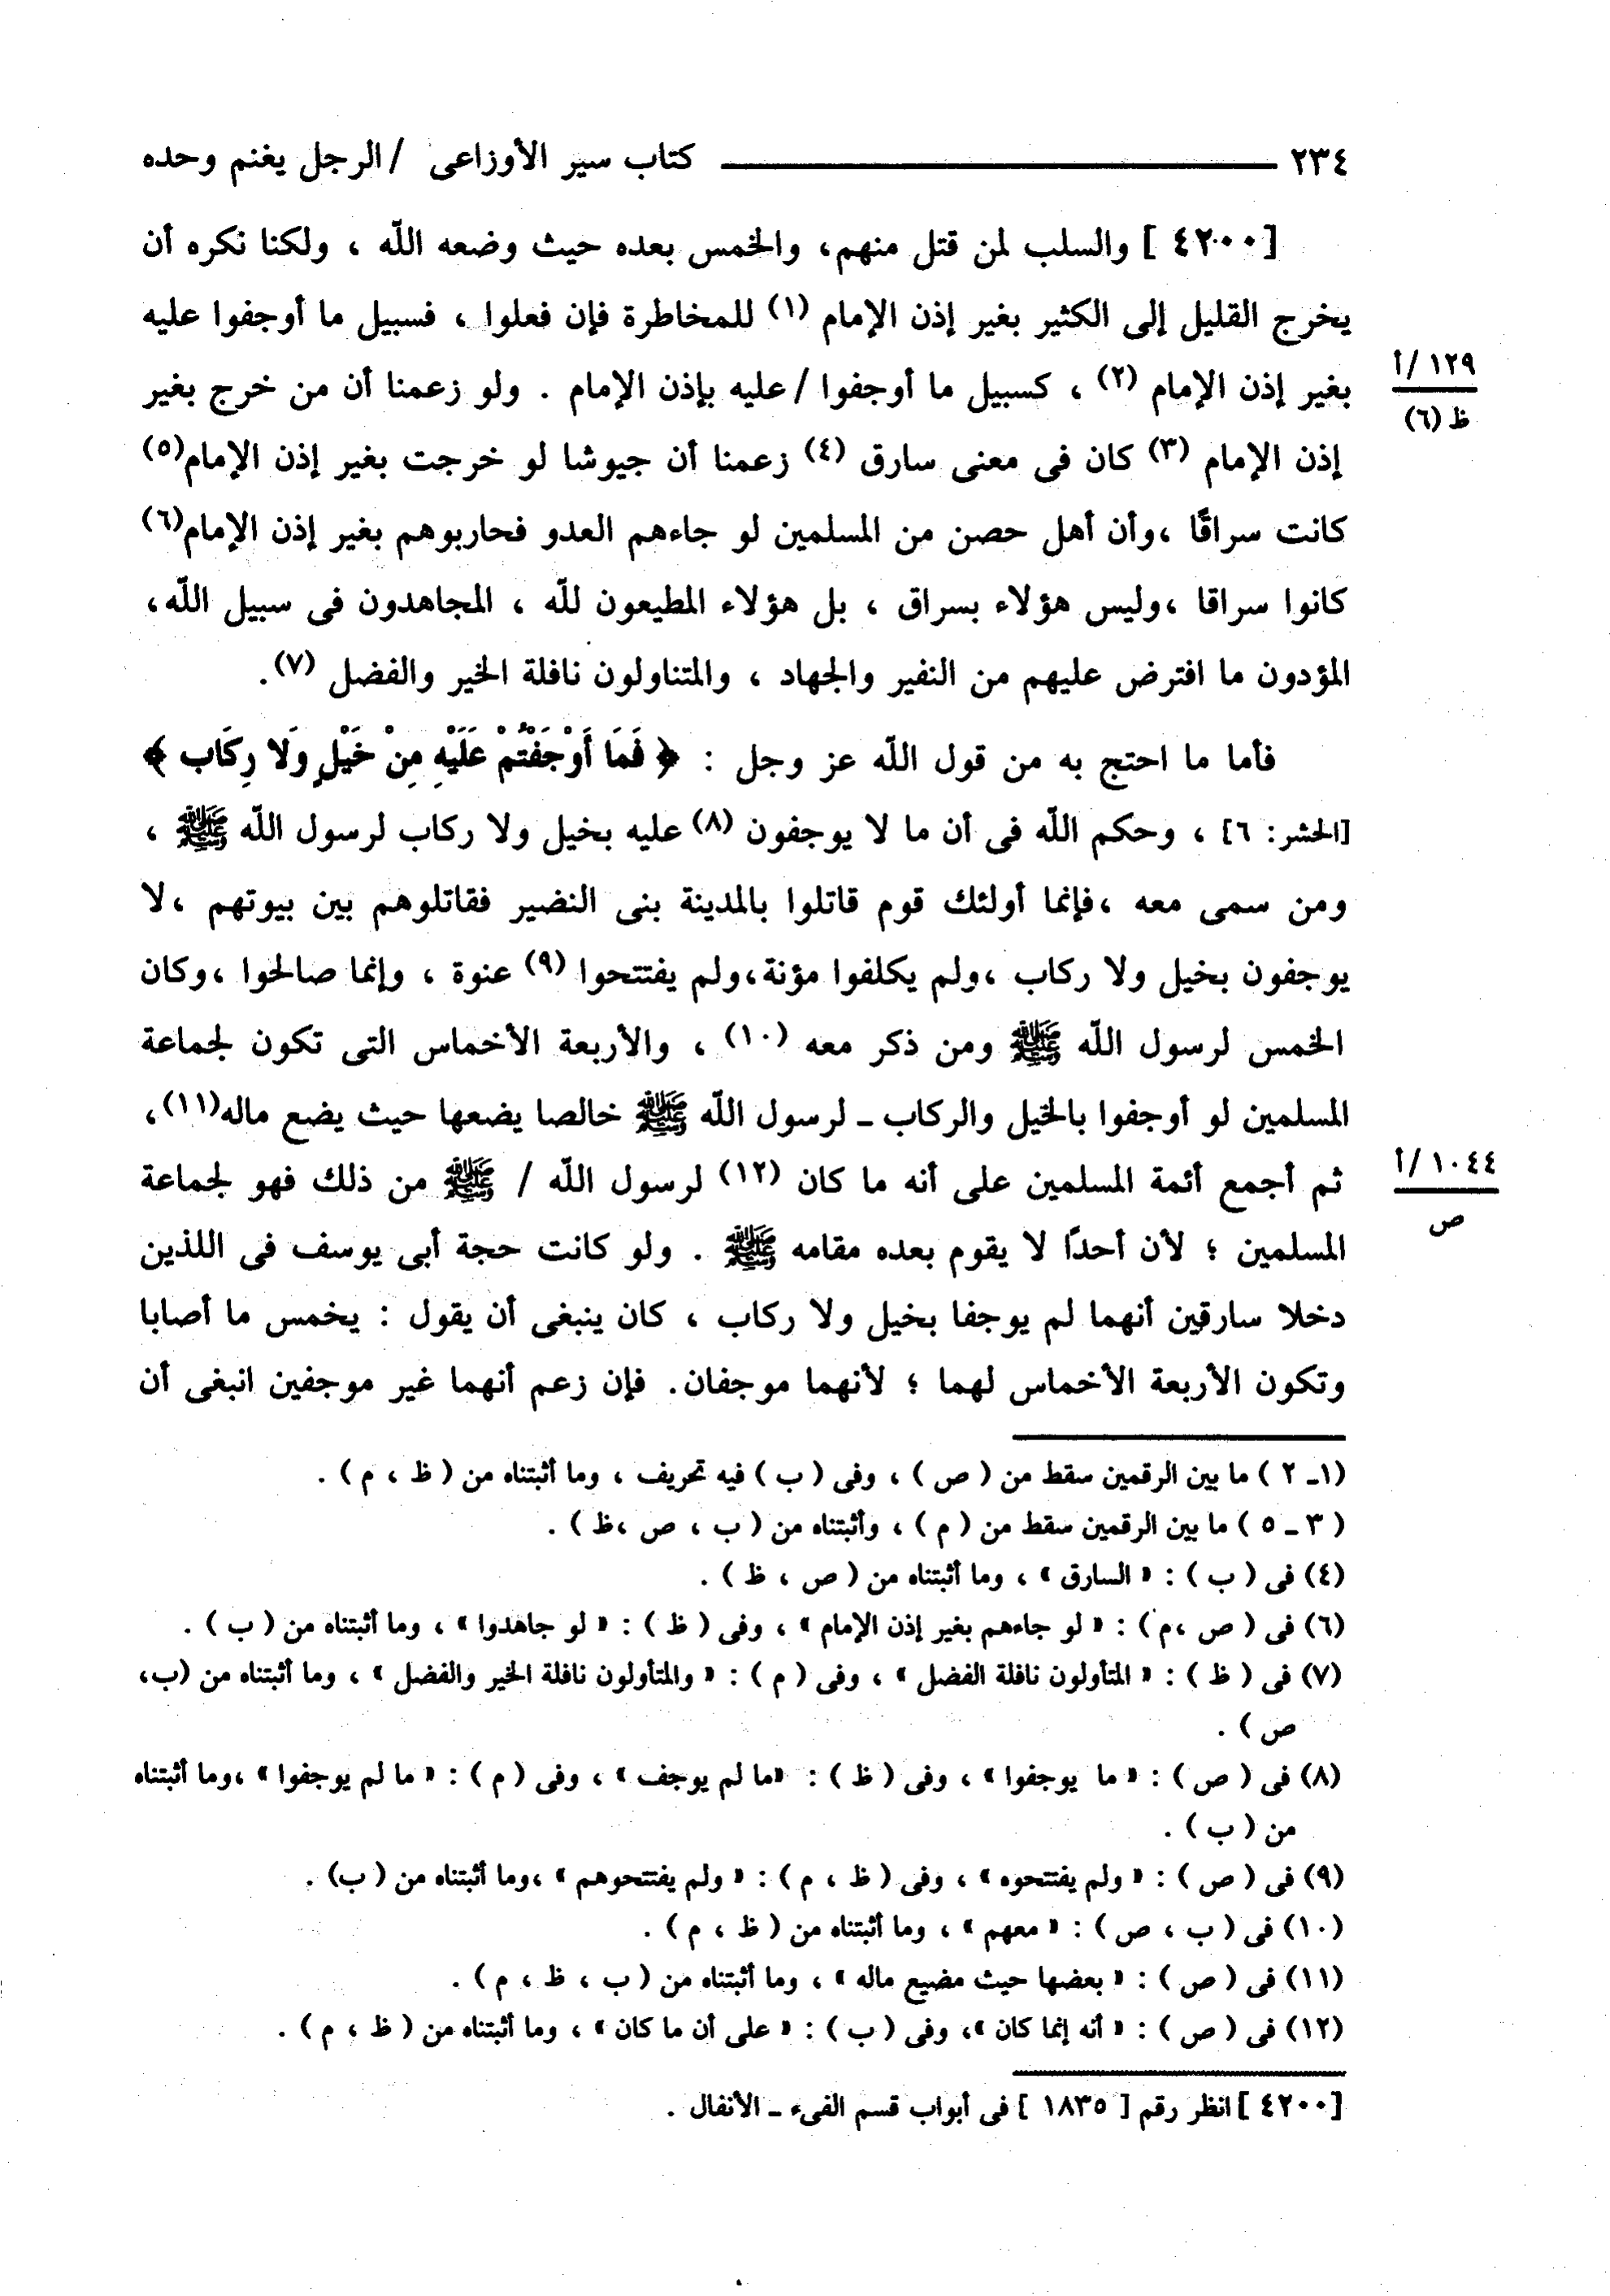 ٢٣٤ ــــــــــــــــــــــــ كتاب سير الأوزاعى / الرجل يغنم وحده
[٤٢٠٠] والسلب لمن قتل منهم، والخمس بعده حيث وضعه الله ، ولكنا نكره أن
يخرج القليل إلى الكثير بغير إذن الإمام (١) للمخاطرة فإن فعلوا ، فسبيل ما أوجفوا عليه
بغير إذن الإمام (٢) ، كسبيل ما أوجفوا / عليه بإذن الإمام . ولو زعمنا أن من خرج بغير
١٢٩/أ
ظ (٦)
إذن الإمام (٣) كان فى معنى سارق (٤) زعمنا أن جيوشا لو خرجت بغير إذن الإمام(٥)
كانت سراقًا ،وأن أهل حصن من المسلمين لو جاءهم العدو فحاربوهم بغير إذن الإمام(٦)
كانوا سراقا ،وليس هؤلاء بسراق ، بل هؤلاء المطيعون لله ، المجاهدون فى سبيل الله،
المؤدون ما افترض عليهم من النفير والجهاد ، والمتناولون نافلة الخير والفضل (٧).
فأما ما احتج به من قول الله عز وجل : ﴿ فَمَا أَوْجَفْتُمْ عَلَيْهِ مِنْ خَيْلٍ وَلا رِكَاب ﴾
[الحشر: ٦] ، وحكم الله فى أن ما لا يوجفون (٨) عليه بخيل ولا ركاب لرسول الله ﷺ ،
ومن سمى معه ،فإنما أولئك قوم قاتلوا بالمدينة بنى النضير فقاتلوهم بين بيوتهم ،لا
يوجفون بخيل ولا ركاب ،ولم يكلفوا مؤنة،ولم يفتتحوا (٩) عنوة ، وإنما صالحوا ،وكان
الخمس لرسول الله ﷺ ومن ذكر معه (١٠) ، والأربعة الأخماس التى تكون لجماعة
المسلمين لو أوجفوا بالخيل والركاب ـ لرسول الله ﷺ خالصا يضعها حيث يضع ماله(١١)،
ثم أجمع أئمة المسلمين على أنه ما كان (١٢) لرسول الله / ﷺ من ذلك فهو لجماعة
١٠٤٤/أ
ص
المسلمين ؛ لأن أحدًا لا يقوم بعده مقامه ﷺ . ولو كانت حجة أبى يوسف فى اللذين
دخلا سارقين أنهما لم يوجفا بخيل ولا ركاب ، كان ينبغى أن يقول : يخمس ما أصابا
وتكون الأربعة الأخماس لهما ؛ لأنهما موجفان. فإن زعم أنهما غير موجفين انبغى أن
(١ـ ٢ ) ما بين الرقمين سقط من ( ص ) ، وفى ( ب ) فيه تحريف ، وما أثبتناه من ( ظ ، م ) .
( ٣ ـ ٥ ) ما بين الرقمين سقط من ( م ) ، وأثبتناه من ( ب ، ص ،ظ ) .
(٤) فى ( ب ) : « السارق » ، وما أثبتناه من ( ص ، ظ ) .
(٦) فى ( ص ،م ) : « لو جاءهم بغير إذن الإمام » ، وفى ( ظ ) : « لو جاهدوا » ، وما أثبتناه من ( ب ) .
(٧) فى ( ظ ) : « المتأولون نافلة الفضل » ، وفى ( م ) : « والمتأولون نافلة الخير والفضل » ، وما أثبتناه من (ب،
ص ) .
(٨) فى ( ص ) : « ما يوجفوا » ، وفى ( ظ ) : «ما لم يوجف » ، وفى ( م ) : « ما لم يوجفوا » ،وما أثبتناه
من ( ب ) .
(٩) فى ( ص ) : « ولم يفتتحوه » ، وفى ( ظ ، م ) : « ولم يفتتحوهم » ،وما أثبتناه من ( ب) .
(١٠) فى ( ب ، ص ) : « معهم » ، وما أثبتناه من ( ظ ، م ) .
(١١) فى ( ص ) : « بعضها حيث مضيع ماله » ، وما أثبتناه من ( ب ، ظ ، م ) .
(١٢) فى ( ص ) : « أنه إنما كان »، وفى ( ب ) : « على أن ما كان » ، وما أثبتناه من ( ظ ، م ) .
[٤٢٠٠] انظر رقم [ ١٨٣٥ ] فى أبواب قسم الفىء ـ الأنفال .